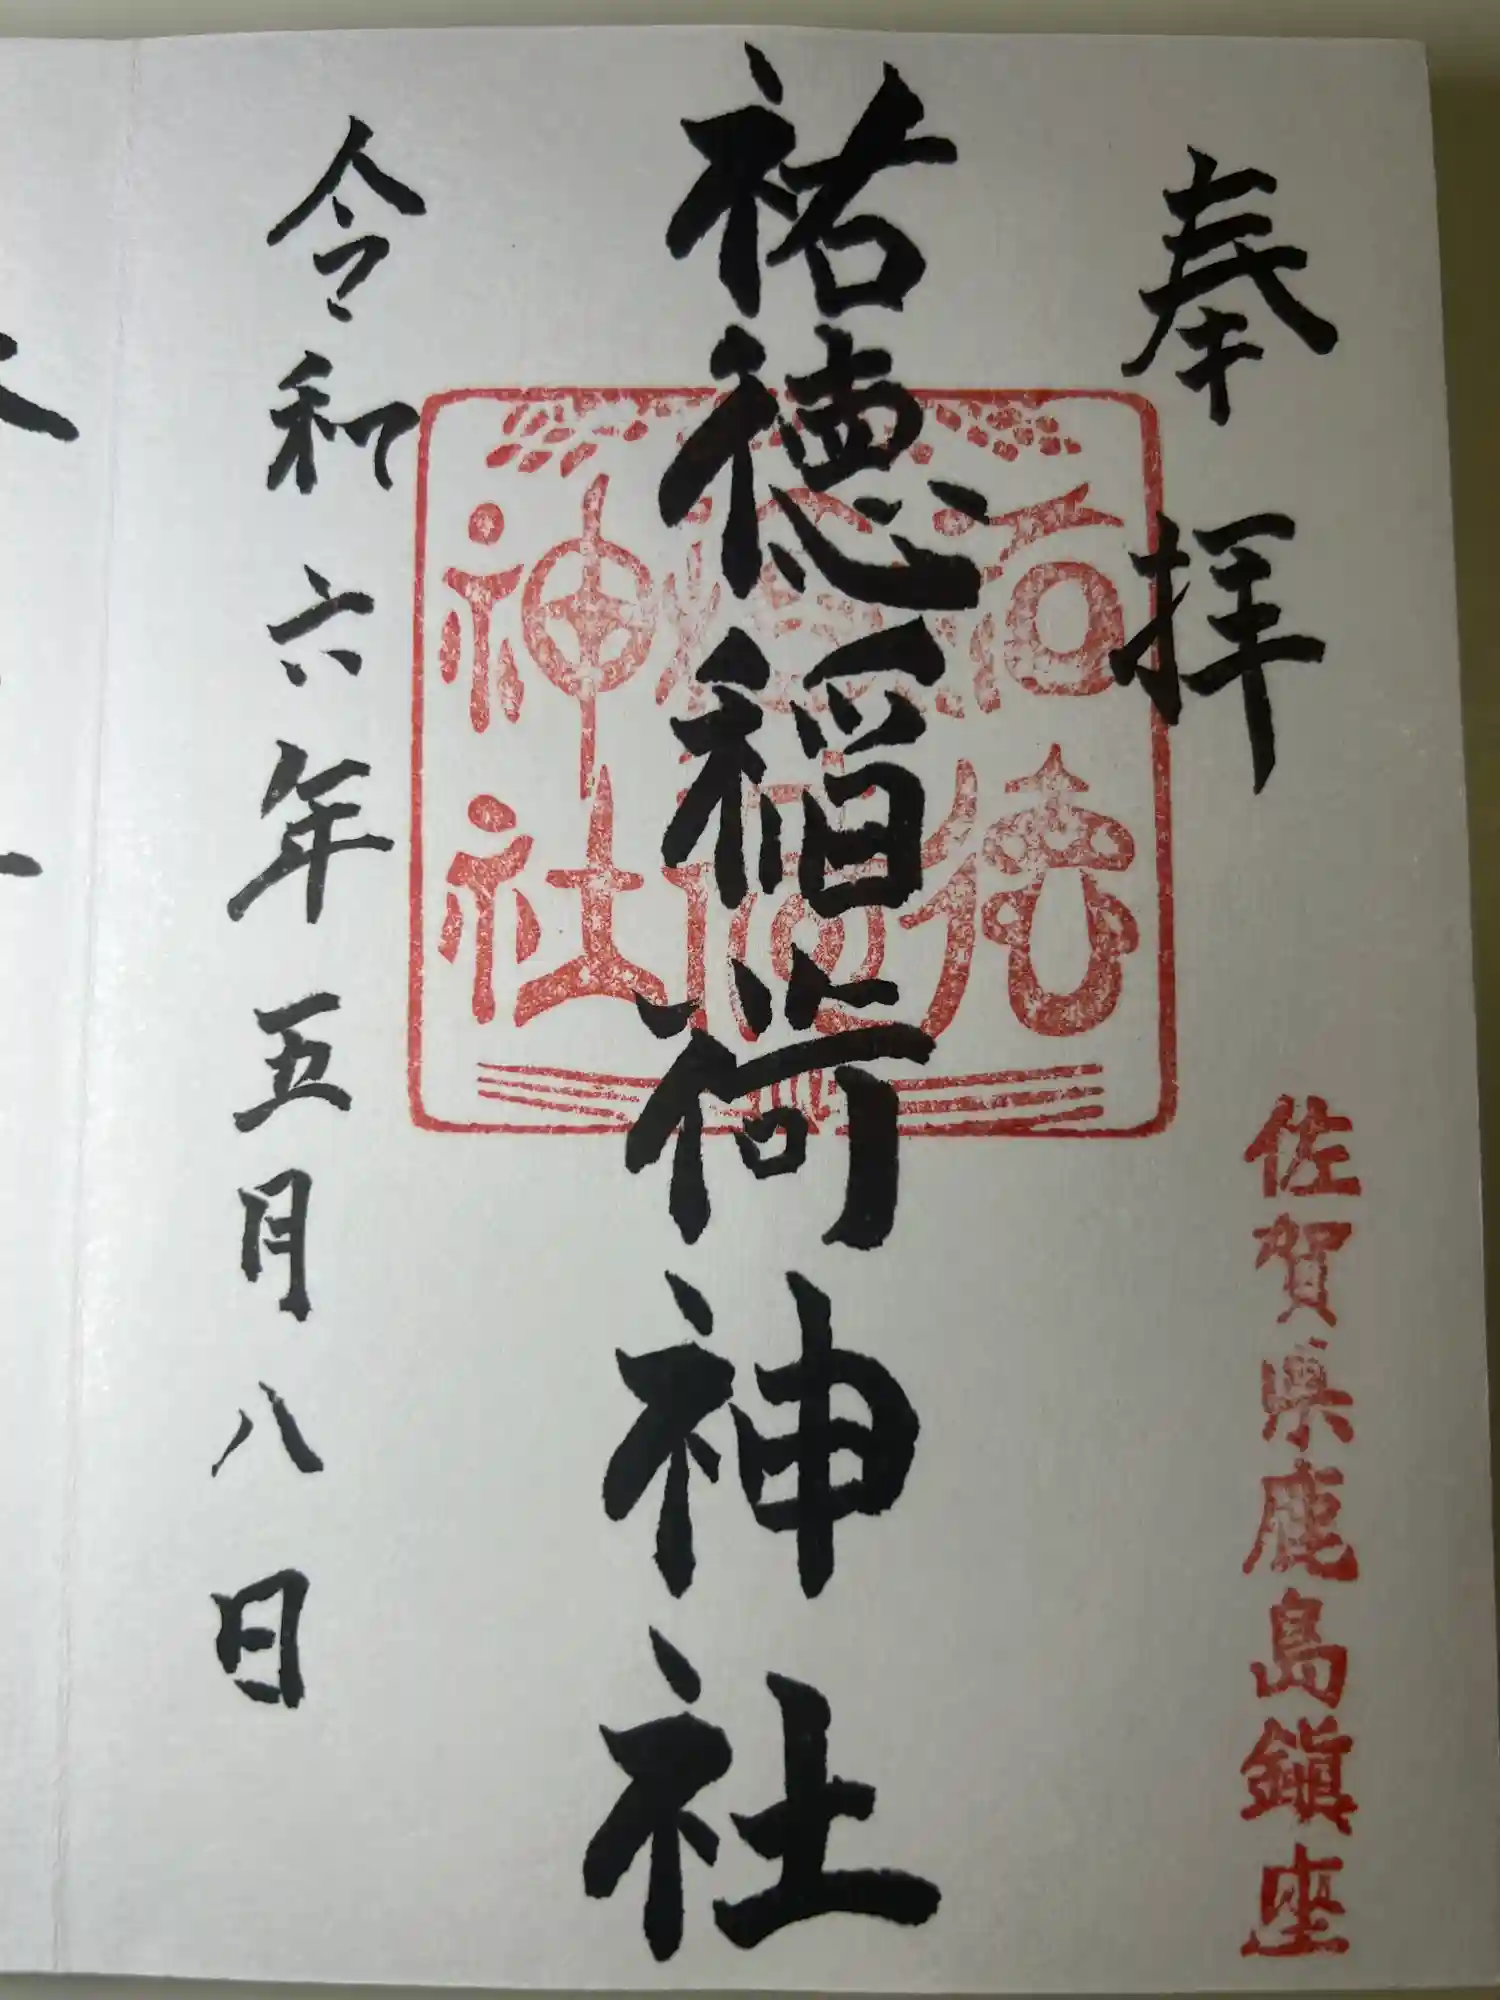 奉拝
佐賀県鹿島鎮座
祐徳稲荷神社
祐徳
稲荷
神社
令和六年五月八日